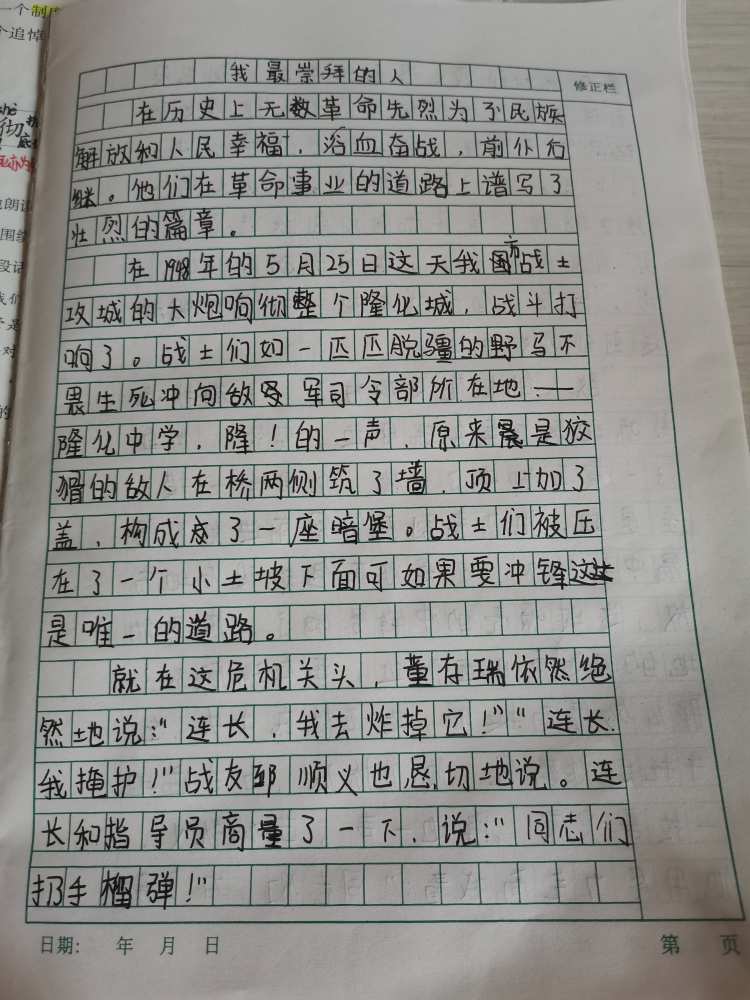 一个制度
个追悼
我最崇拜的人
修正栏
在历史上无数革命先烈为了民族
解放和人民幸福，浴血奋战，前仆后
继。他们在革命事业的道路上谱写了
壮烈的篇章。
在1948年的5月25日这天我方战士
攻城的大炮响彻整个隆化城，战斗打
响了。战士们如一匹匹脱疆的野马不
畏生死冲向敌军司令部所在地——
隆化中学，隆！的一声，原来是狡
猾的敌人在桥两侧筑了墙，顶上加了
盖，构成了一座暗堡。战士们被压
在了一个小土坡下面可如果要冲锋这
是唯一的道路。
就在这危机关头，董存瑞依然绝
然地说：“连长，我去炸掉它！”“连长
我掩护！”战友郅顺义也恳切地说。连
长和指导员商量了一下，说：“同志们
扔手榴弹！”
日期： 年 月 日
第 页